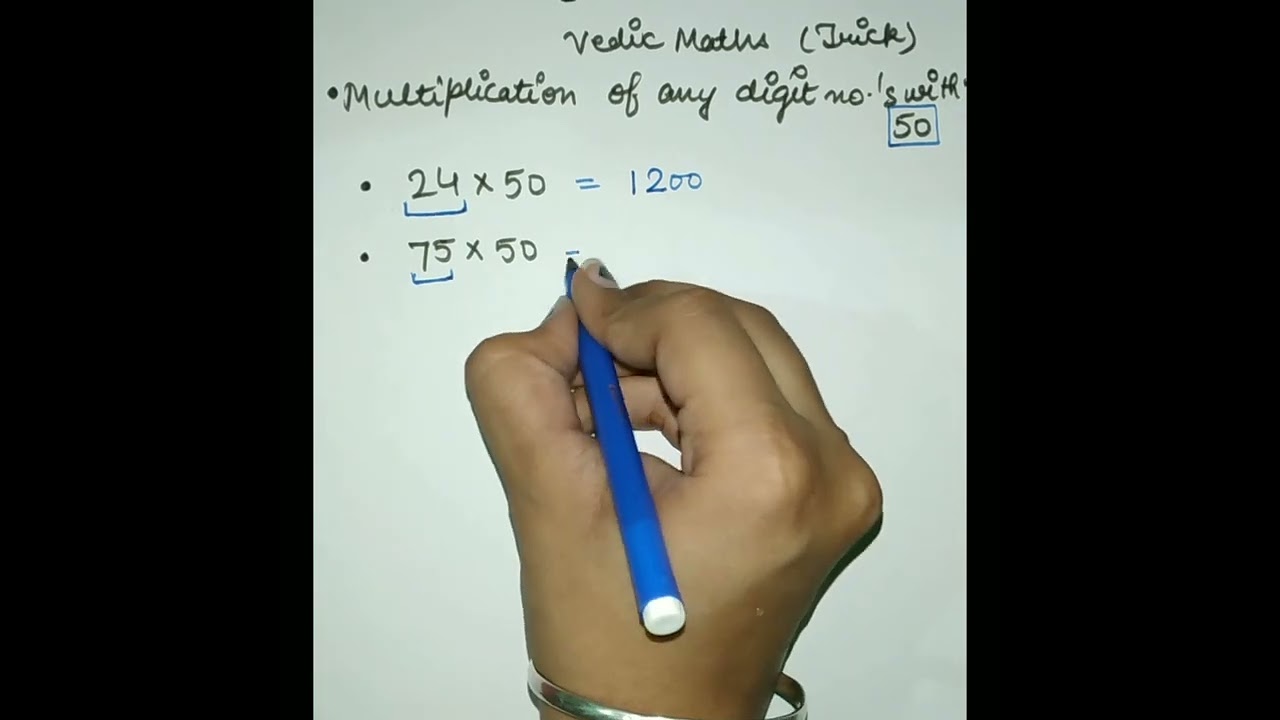 Vedic Maths (Trick)
• Multiplication of any digit no.'s with
50
• 24 × 50 = 1200
• 75 × 50 =